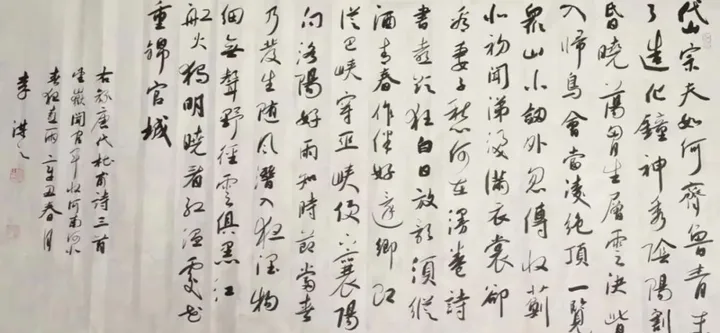 岱宗夫如何齊魯青未
了造化鐘神秀陰陽割
昏曉蕩胸生層雲決眥
入歸鳥會當凌絕頂一覽
眾山小劍外忽傳收薊
北初聞涕淚滿衣裳卻
看妻子愁何在漫卷詩
書喜欲狂白日放歌須縱
酒青春作伴好還鄉即
從巴峽穿巫峽便下襄陽
向洛陽好雨知時節當春
乃發生隨風潛入夜潤物
細無聲野徑雲俱黑江
船火獨明曉看紅濕處花
重錦官城
右錄唐代杜甫詩三首
望嶽聞官軍收河南河北
春夜喜雨辛丑春月
李洪